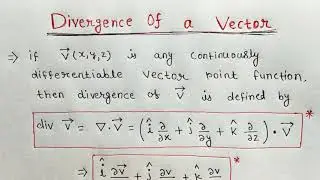 Divergence Of a Vector
⇒ if V⃗(x,y,z) is any continuously
differentiable vector point function,
then divergence of V⃗ is defined by
div V⃗ = ∇·V⃗ = (î ∂/∂x + ĵ ∂/∂y + k̂ ∂/∂z)·V⃗ *
⇒ î ∂V⃗/∂x + ĵ ∂v/∂y + k̂ ∂v *